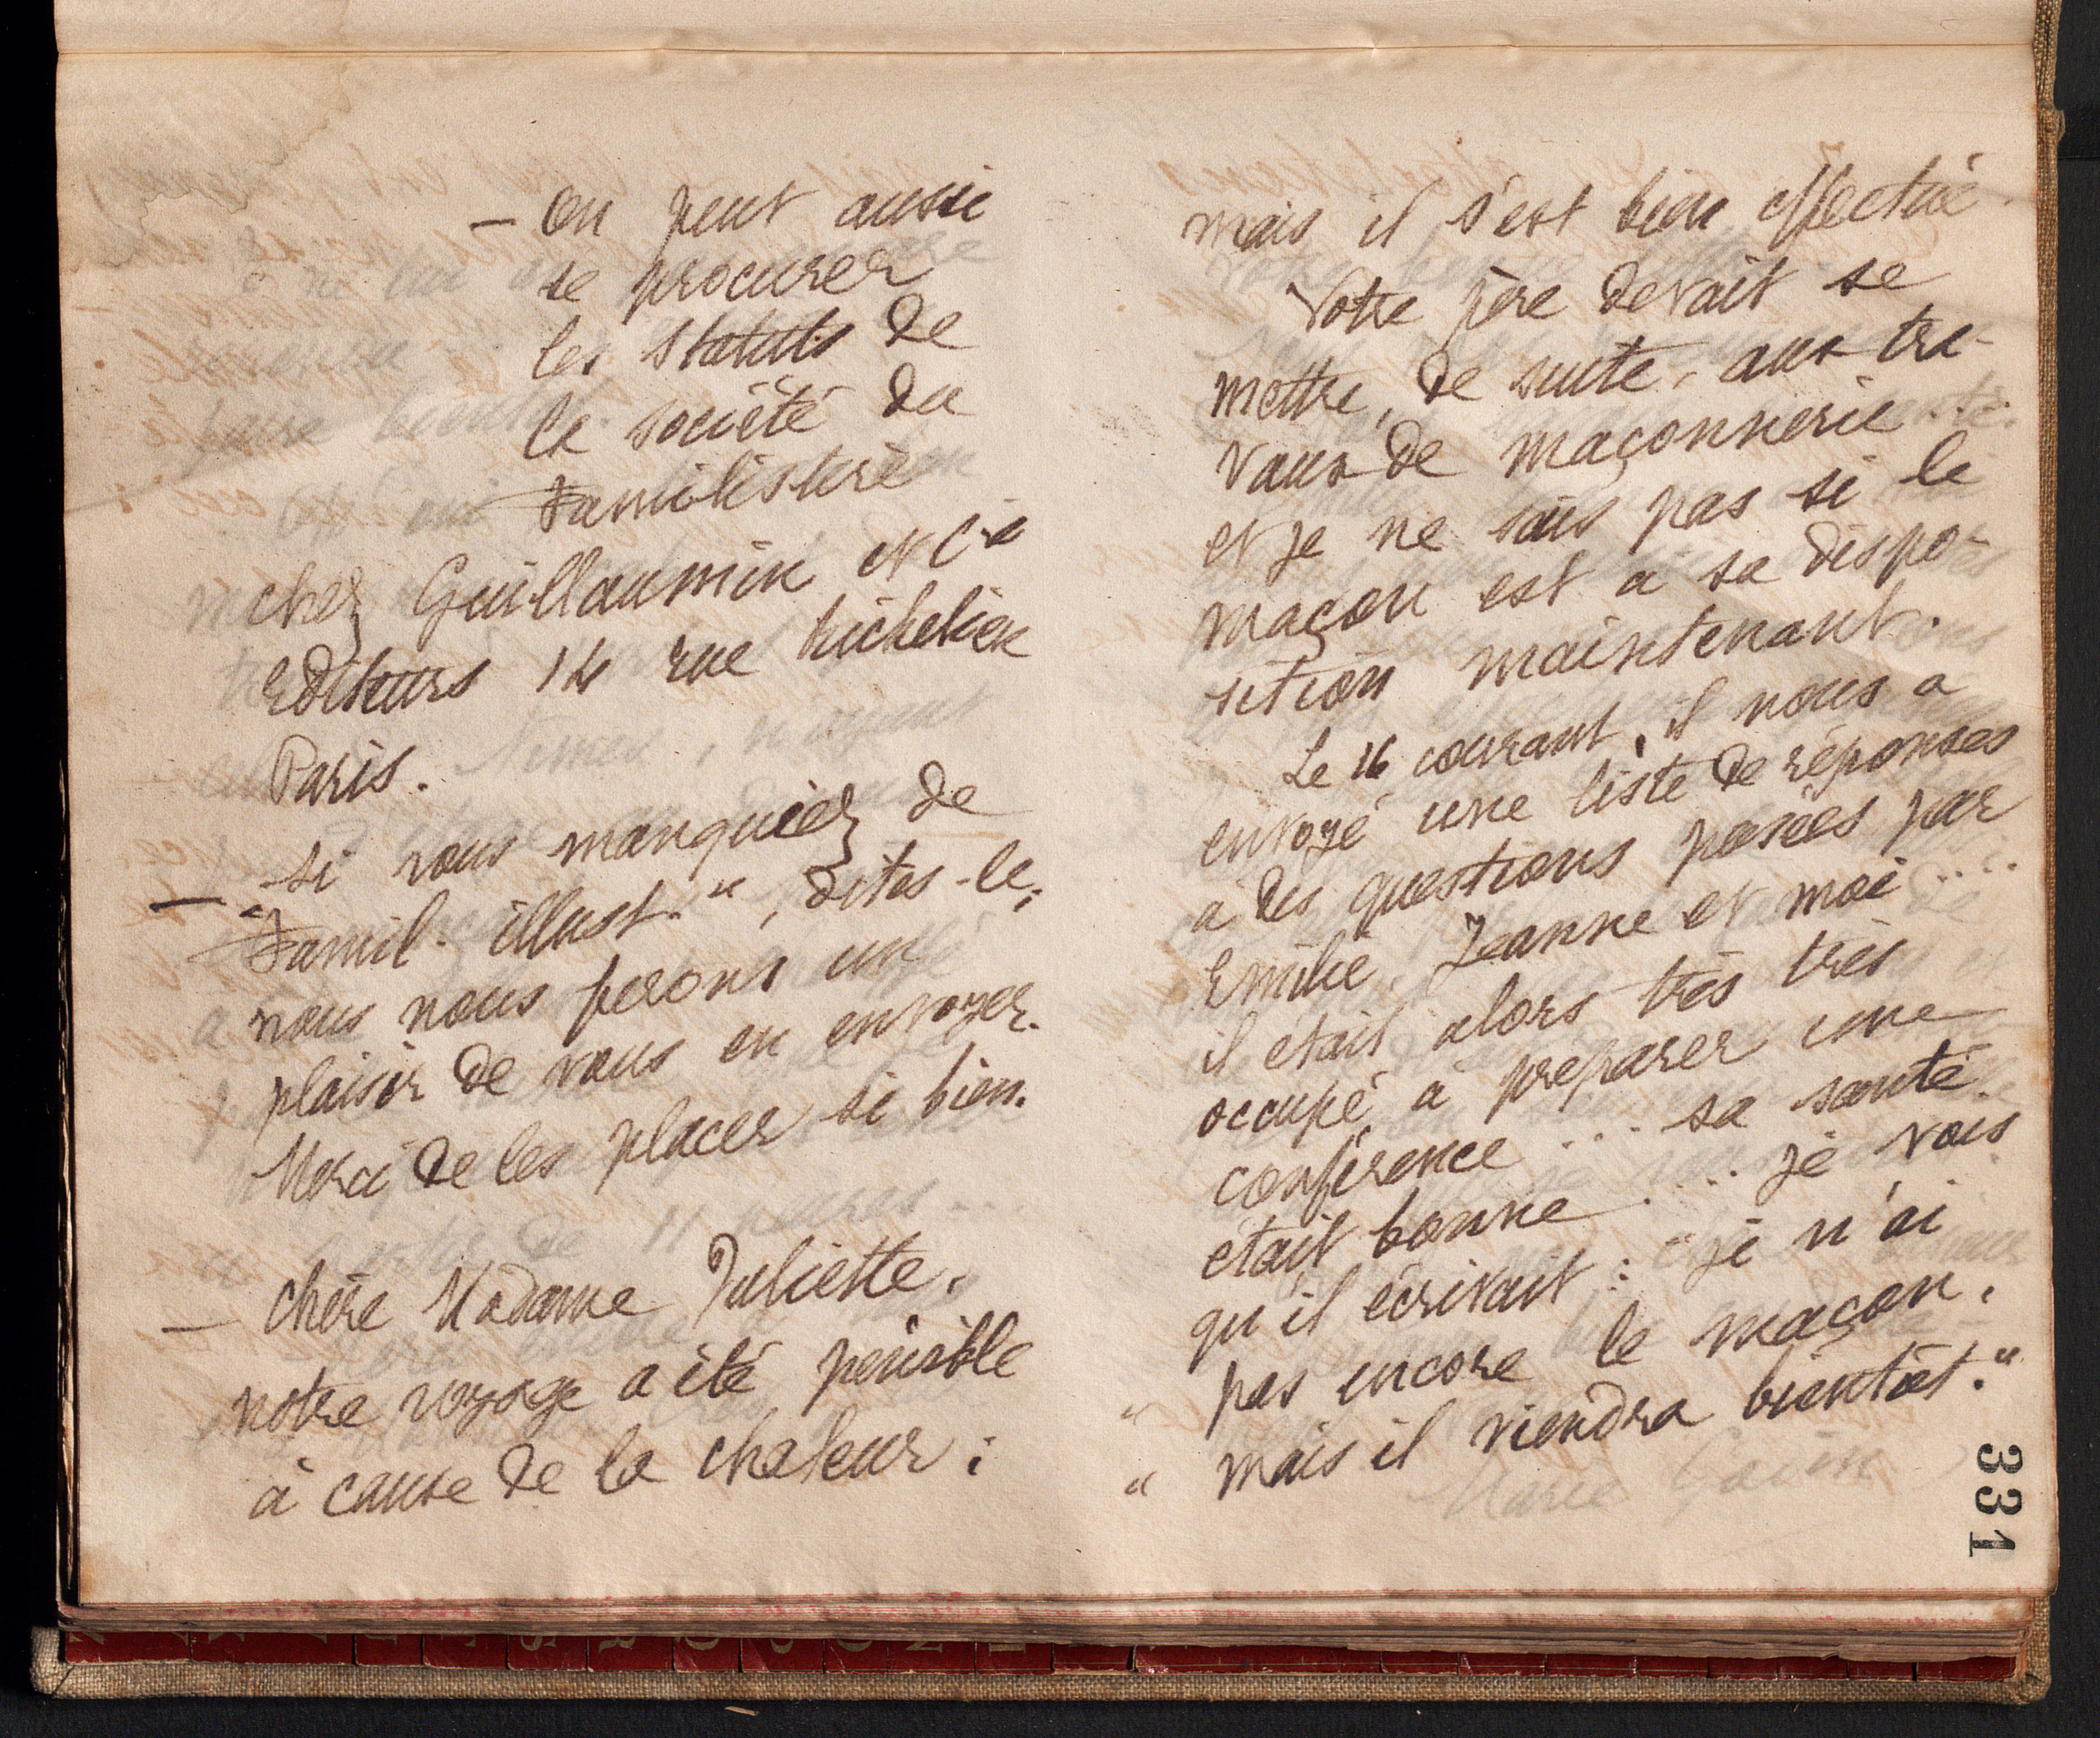 — On peut aussi
se procurer
les Statuts de
la société du
Familistère
chez Guillaumin et Cie
Editeurs 14 rue Richelieu
Paris.
— Si vous manquiez de
"Famil. illust.", dites-le,
nous nous ferons un
plaisir de vous en envoyer.
Merci de les placer si bien.
— Chère Madame Juliette,
notre voyage a été pénible
à cause de la chaleur ;
mais il s'est bien effectué.
Votre père devait se
mettre, de suite, aux tra-
vaux de maçonnerie . . . .
et je ne sais pas si le
maçon est à sa dispo-
sition maintenant.
Le 16 courant, il nous a
envoyé une liste de réponses
à des questions posées par
Emilie, Jeanne et moi . . . .
il était alors très très
occupé à préparer une
conférence . . . sa santé
était bonne . . . . je vois
qu'il écrivait : "je n'ai
" pas encore le maçon,
" mais il viendra bientôt."
331